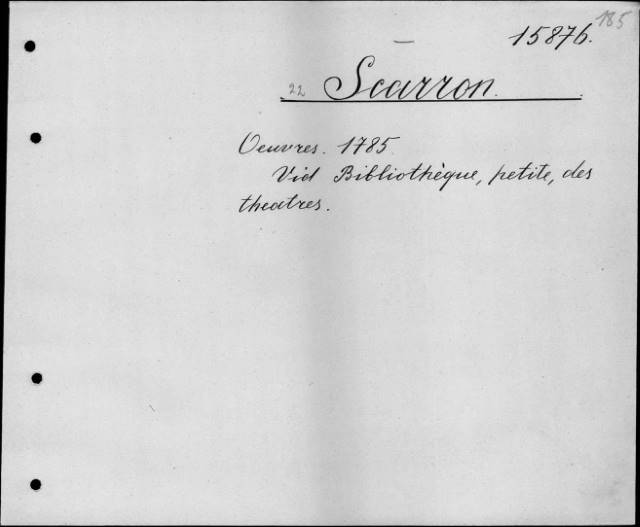 185
15876.
22 Scarron.
Oeuvres. 1785.
Vid Bibliothèque, petite, des
theatres.